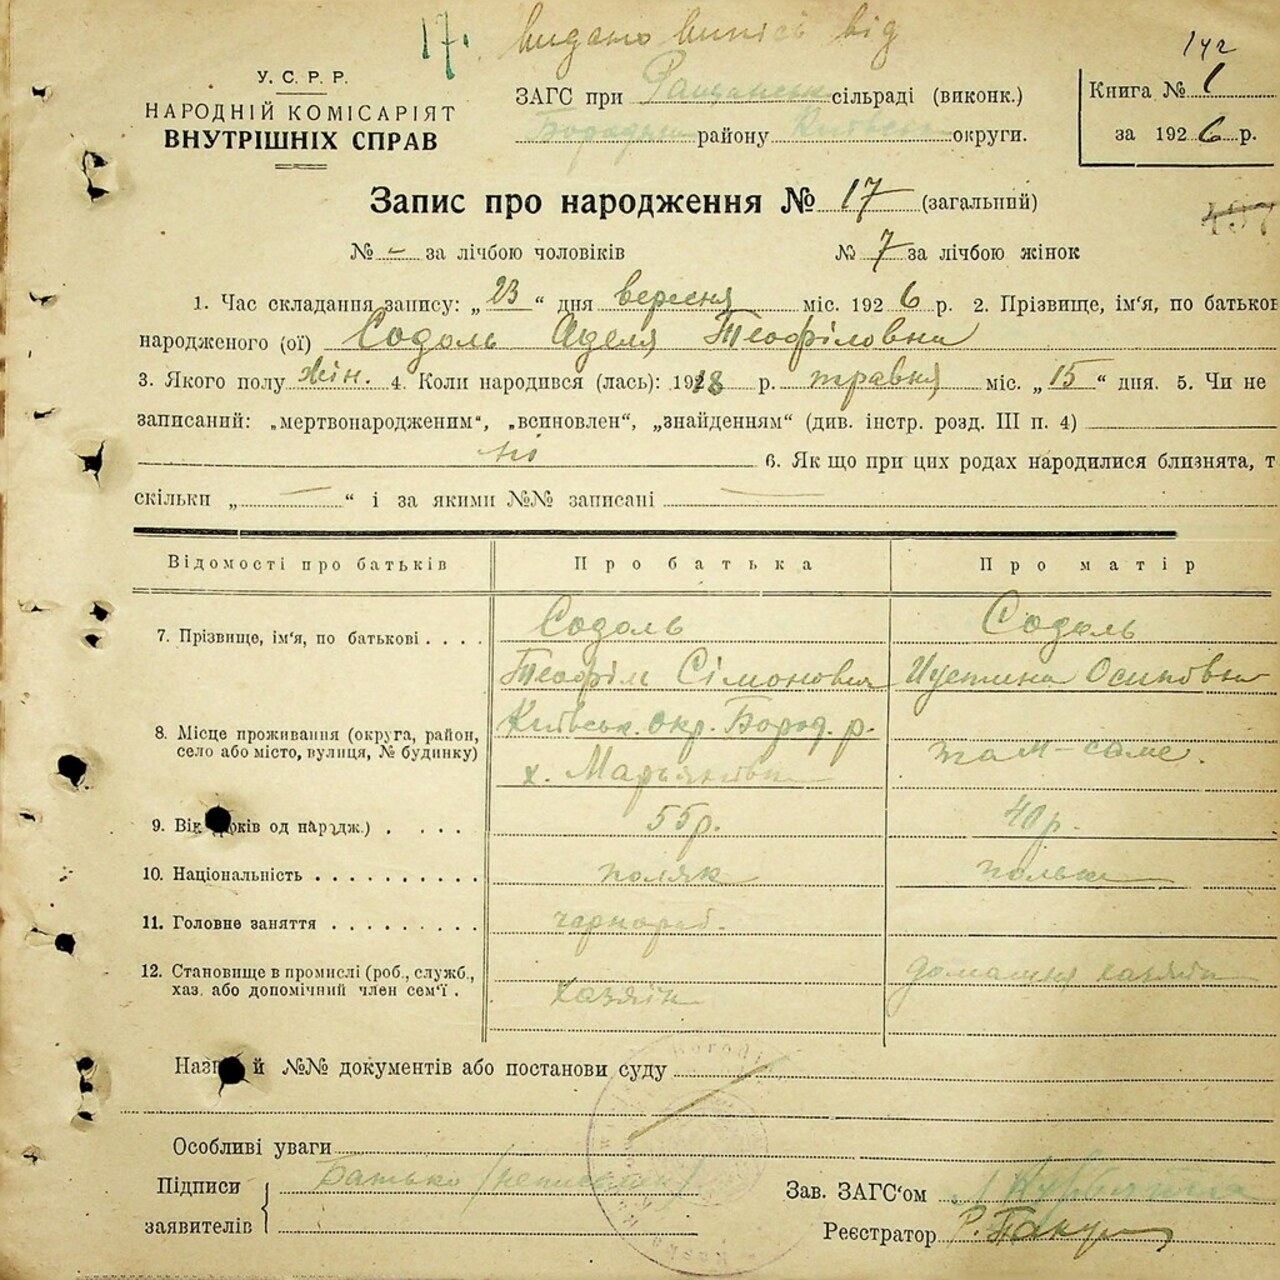 17. видано випісь від
142
У. С. Р. Р.
НАРОДНІЙ КОМІСАРІЯТ
ВНУТРІШНІХ СПРАВ
ЗАГС при сільраді (виконк.)
району округи.
Книга № 1
за 1926 р.
Запис про народження № 17 (загальний)
№ - за лічбою чоловіків № 7 за лічбою жінок
1. Час складання запису: „23“ дня вересня міс. 1926 р. 2. Прізвище, ім'я, по батьков
народженого (ої) Содоль Аделя Теофіловна
3. Якого полу жін. 4. Коли народився (лась): 1918 р. травня міс. „15“ дня. 5. Чи не
записаний: „мертвонародженим“, „всиновлен“, „знайденням“ (див. інстр. розд. III п. 4)
ні 6. Як що при цих родах народилися близнята, т
скільки „—“ і за якими №№ записані —
Відомості про батьків Про батька Про матір
7. Прізвище, ім'я, по батькові . . . . Содоль Содоль
Теофіл Сімонович Иустина Осиповна
8. Місце проживання (округа, район, село або місто, вулиця, № будинку) Київськ. окр. Бород. р. там-саме.
х. Марьянівка
9. Вік років од народж.) . . . . 55р. 40р.
10. Національність . . . . . . . . . . поляк полька
11. Головне заняття . . . . . . . . . чорнороб.
12. Становище в промислі (роб., служб., хаз. або допомічний член сем'ї . хазяін домашня хазяйк
Наз й №№ документів або постанови суду
Особливі уваги
Підписи Батько
заявителів
Зав. ЗАГС'ом
Реєстратор Р.